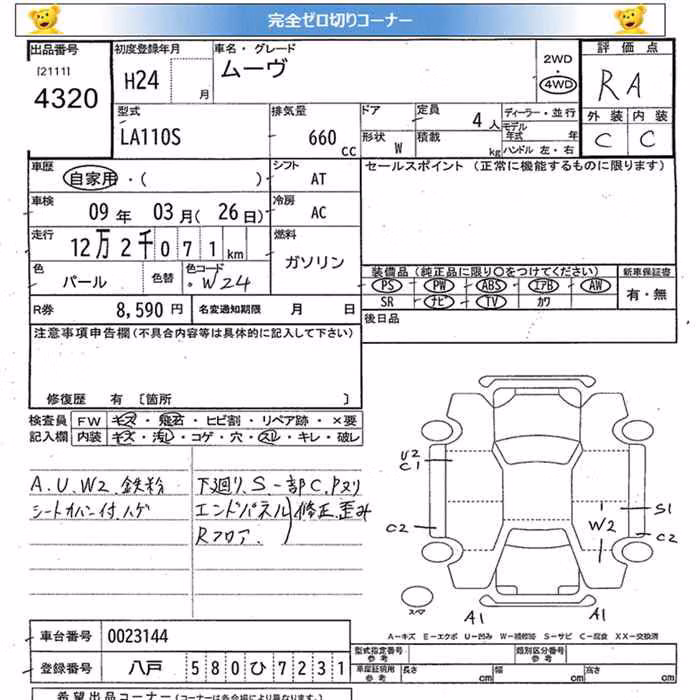 完全ゼロ切りコーナー
出品番号 初度登録年月 車名・グレード 2WD 評価点
[2111] 4320 H24 月 ムーヴ 4WD RA
型式 排気量 ドア 定員 4人 ディーラー・並行 外装 内装
LA110S 660 cc 形状 W 積載 kg モデル年式 年 ハンドル 左・右 C C
車歴 自家用・( ) シフト AT セールスポイント (正常に機能するものに限ります)
車検 09年 03月(26日) 冷房 AC
走行 12万2千071km 燃料 ガソリン
色 パール 色替 色コード W24 装備品 (純正品に限り○をつけてください) 新車保証書
PS PW ABS エアB AW 有・無
SR ナビ TV カワ
R券 8,590円 名変通知期限 月 日 後日品
注意事項申告欄(不具合内容等は具体的に記入して下さい)
修復歴 有 [箇所 ]
検査員 FW キズ・飛石・ヒビ割・リペア跡・×要
記入欄 内装 キズ・汚レ・コゲ・穴・スレ・キレ・破レ
A.U.W2.鉄粉 下廻り.S.一部C.Pヌリ
シートカバー付.ハゲ エンドパネル 修正.歪み
Rフロア.
U2
C1
C2
S1
W2
C2
スペア
A1 A1
A-キズ E-エクボ U-凹み W-補修跡 S-サビ C-腐食 XX-交換済
車台番号 0023144
登録番号 八戸 580ひ7231
型式指定番号 参考 類別区分番号 参考
車庫証明用 参考 長さ cm 幅 cm 高さ cm
希望出品コーナー(コーナーは各会場により異なります。)